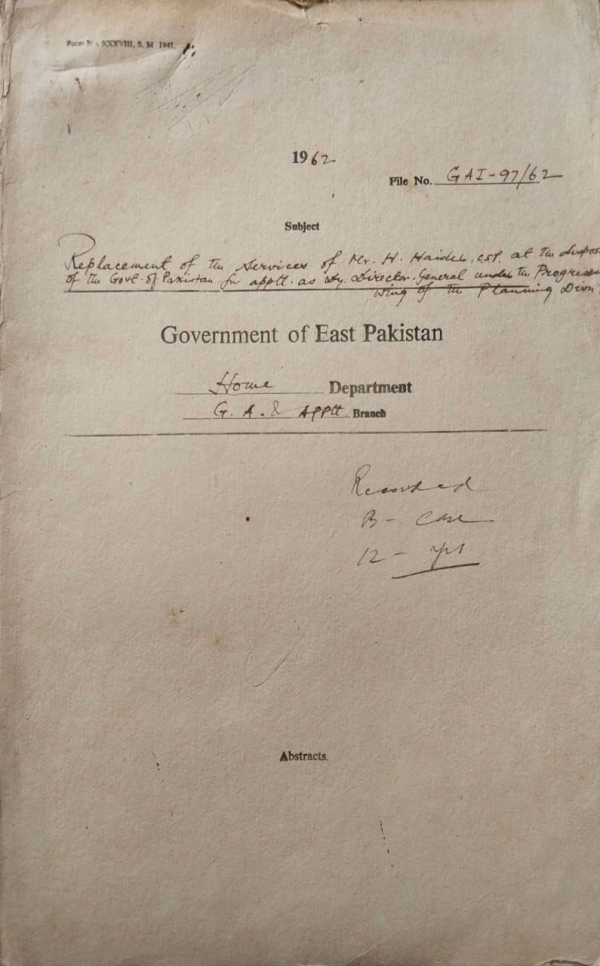 Form No. XXXVIII, S. M 1941.
1962
File No. GAI-97/62
Subject
Replacement of the Services of Mr. H. Haider, CSP. at the dispos
of the Govt. of Pakistan for apptt. as Dy. Director-General under the Progress
wing of the Planning Divn
Government of East Pakistan
Home Department
G. A. & Apptt. Branch
Recorded
B- Case
12 -
Abstracts.